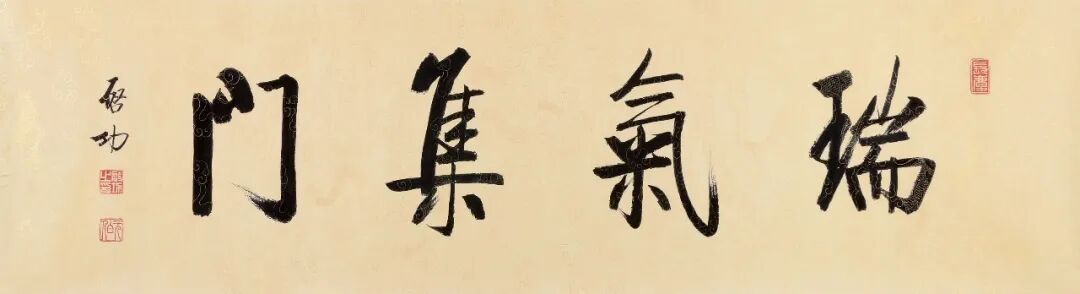 瑞氣集門
啓功